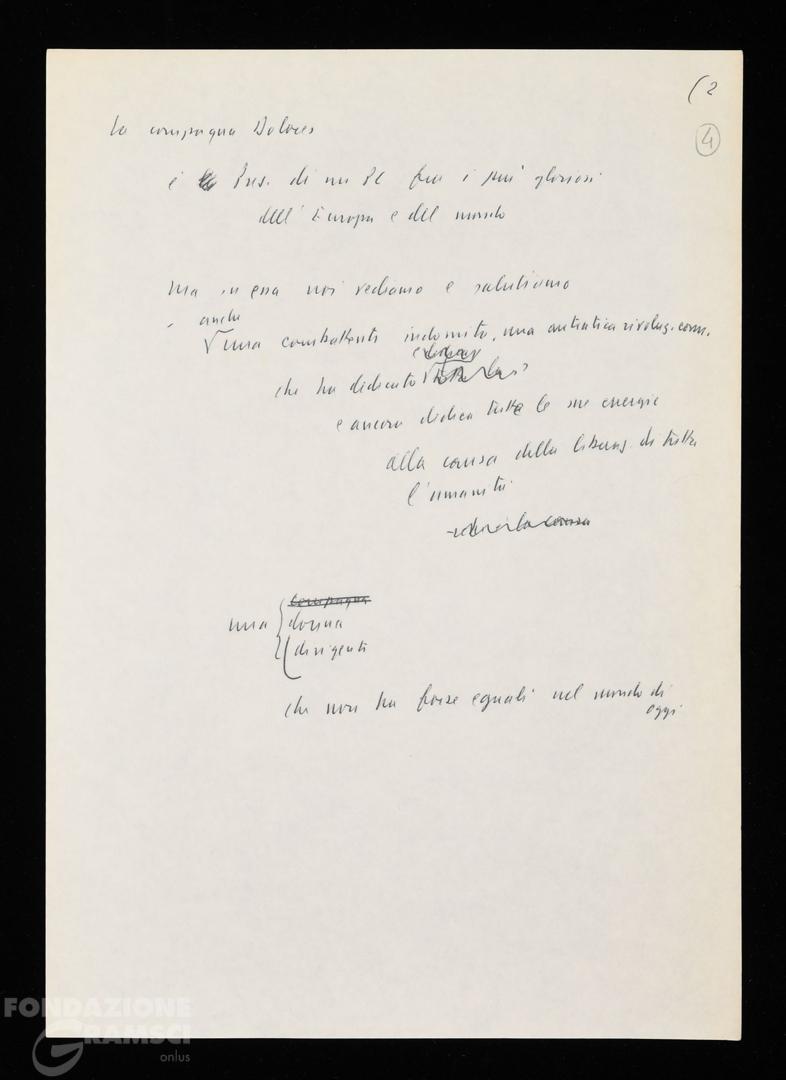 (2
4
La compagna Dolores
è Pres. di un PC fra i più gloriosi
dell'Europa e del mondo
Ma in essa noi vediamo e salutiamo
anche
una combattente indomita, una autentica rivoluz. com.
che ha dedicato
e ancora dedica tutte le sue energie
alla causa della liberaz. di tutta
l'umanità
la causa
compagna
una donna
dirigente
che non ha forse eguali nel mondo di
oggi
FONDAZIONE
GRAMSCI
onlus